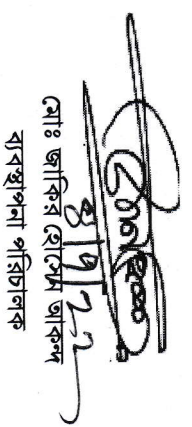 ৪/৭/২২
মোঃ জাকির হোসেন আকন্দ
ব্যবস্থাপনা পরিচালক